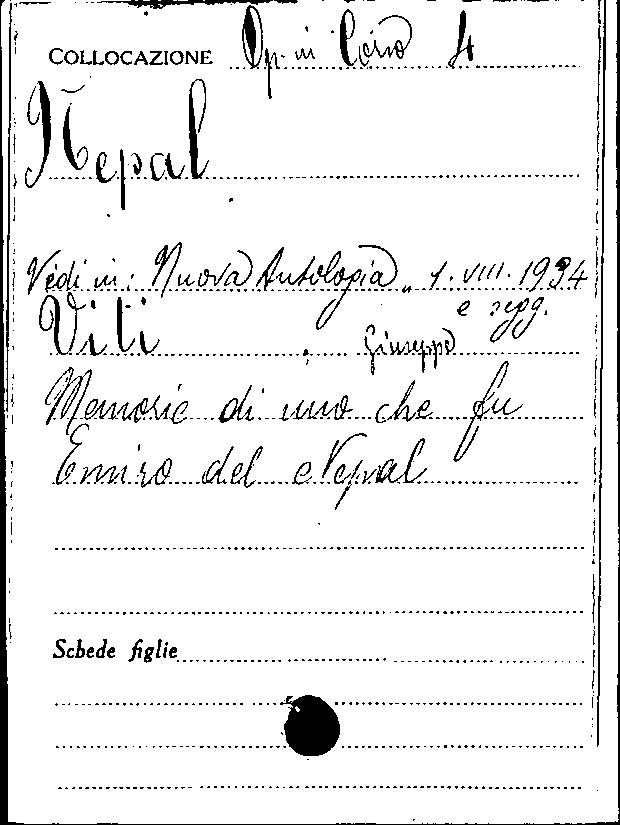 COLLOCAZIONE Op. in Corso 4
Nepal
Vedi in: Nuova Antologia„ 1. VIII. 1934
e segg.
Viti, Giuseppe
Memorie di uno che fu
Emiro del Nepal
Schede figlie